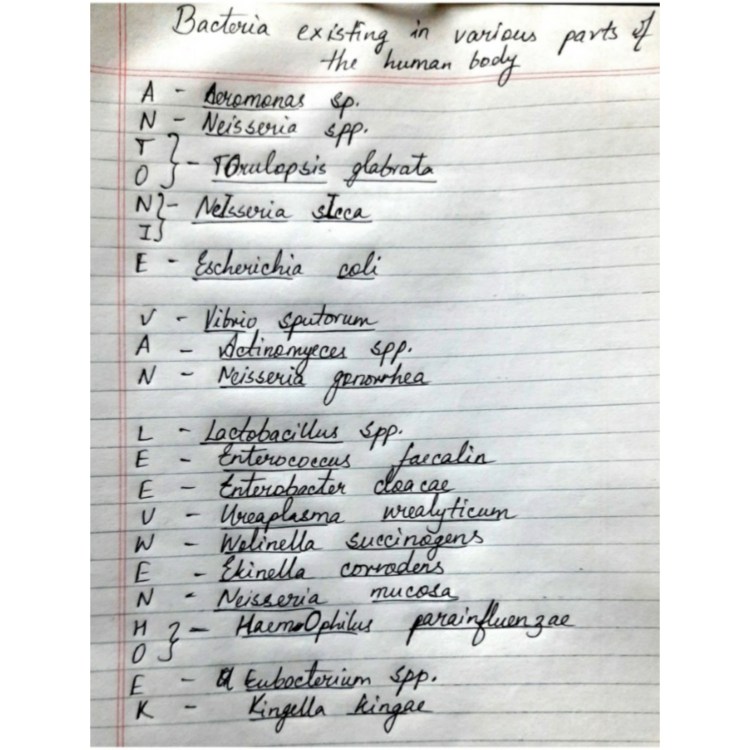 Bacteria existing in various parts of
the human body
A - Aeromonas sp.
N - Neisseria spp.
T
O } - TOrulopsis glabrata
N } - NeIsseria sIcca
I
E - Escherichia coli
V - Vibrio sputorum
A - Actinomyeces spp.
N - Neisseria gonorrhea
L - Lactobacillus spp.
E - Enterococcus faecalin
E - Enterobacter cloacae
U - Ureaplasma urealyticum
W - Wolinella succinogens
E - Ekinella corrodens
N - Neisseria mucosa
H } - HaemOphilus parainfluenzae
O
E - Eubacterium spp.
K - Kingella kingae